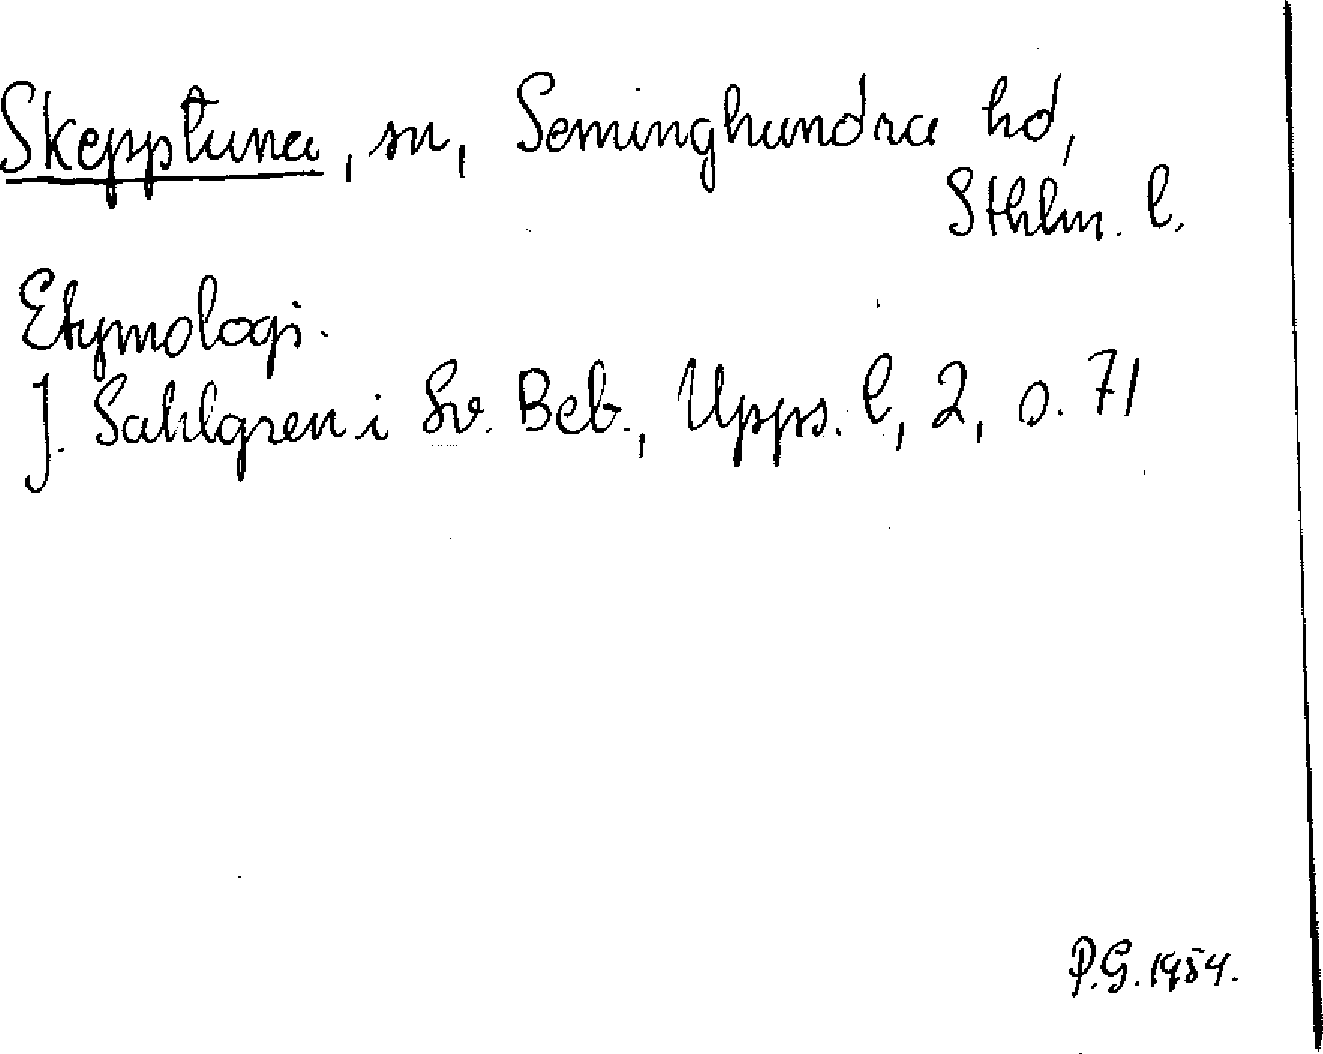 Skepptuna, sn, Seminghundra hd,
Sthlm. l.
Etymologi.
J. Sahlgren i Sv. Beb., Upps. l, 2, s. 71
P.G. 1954.